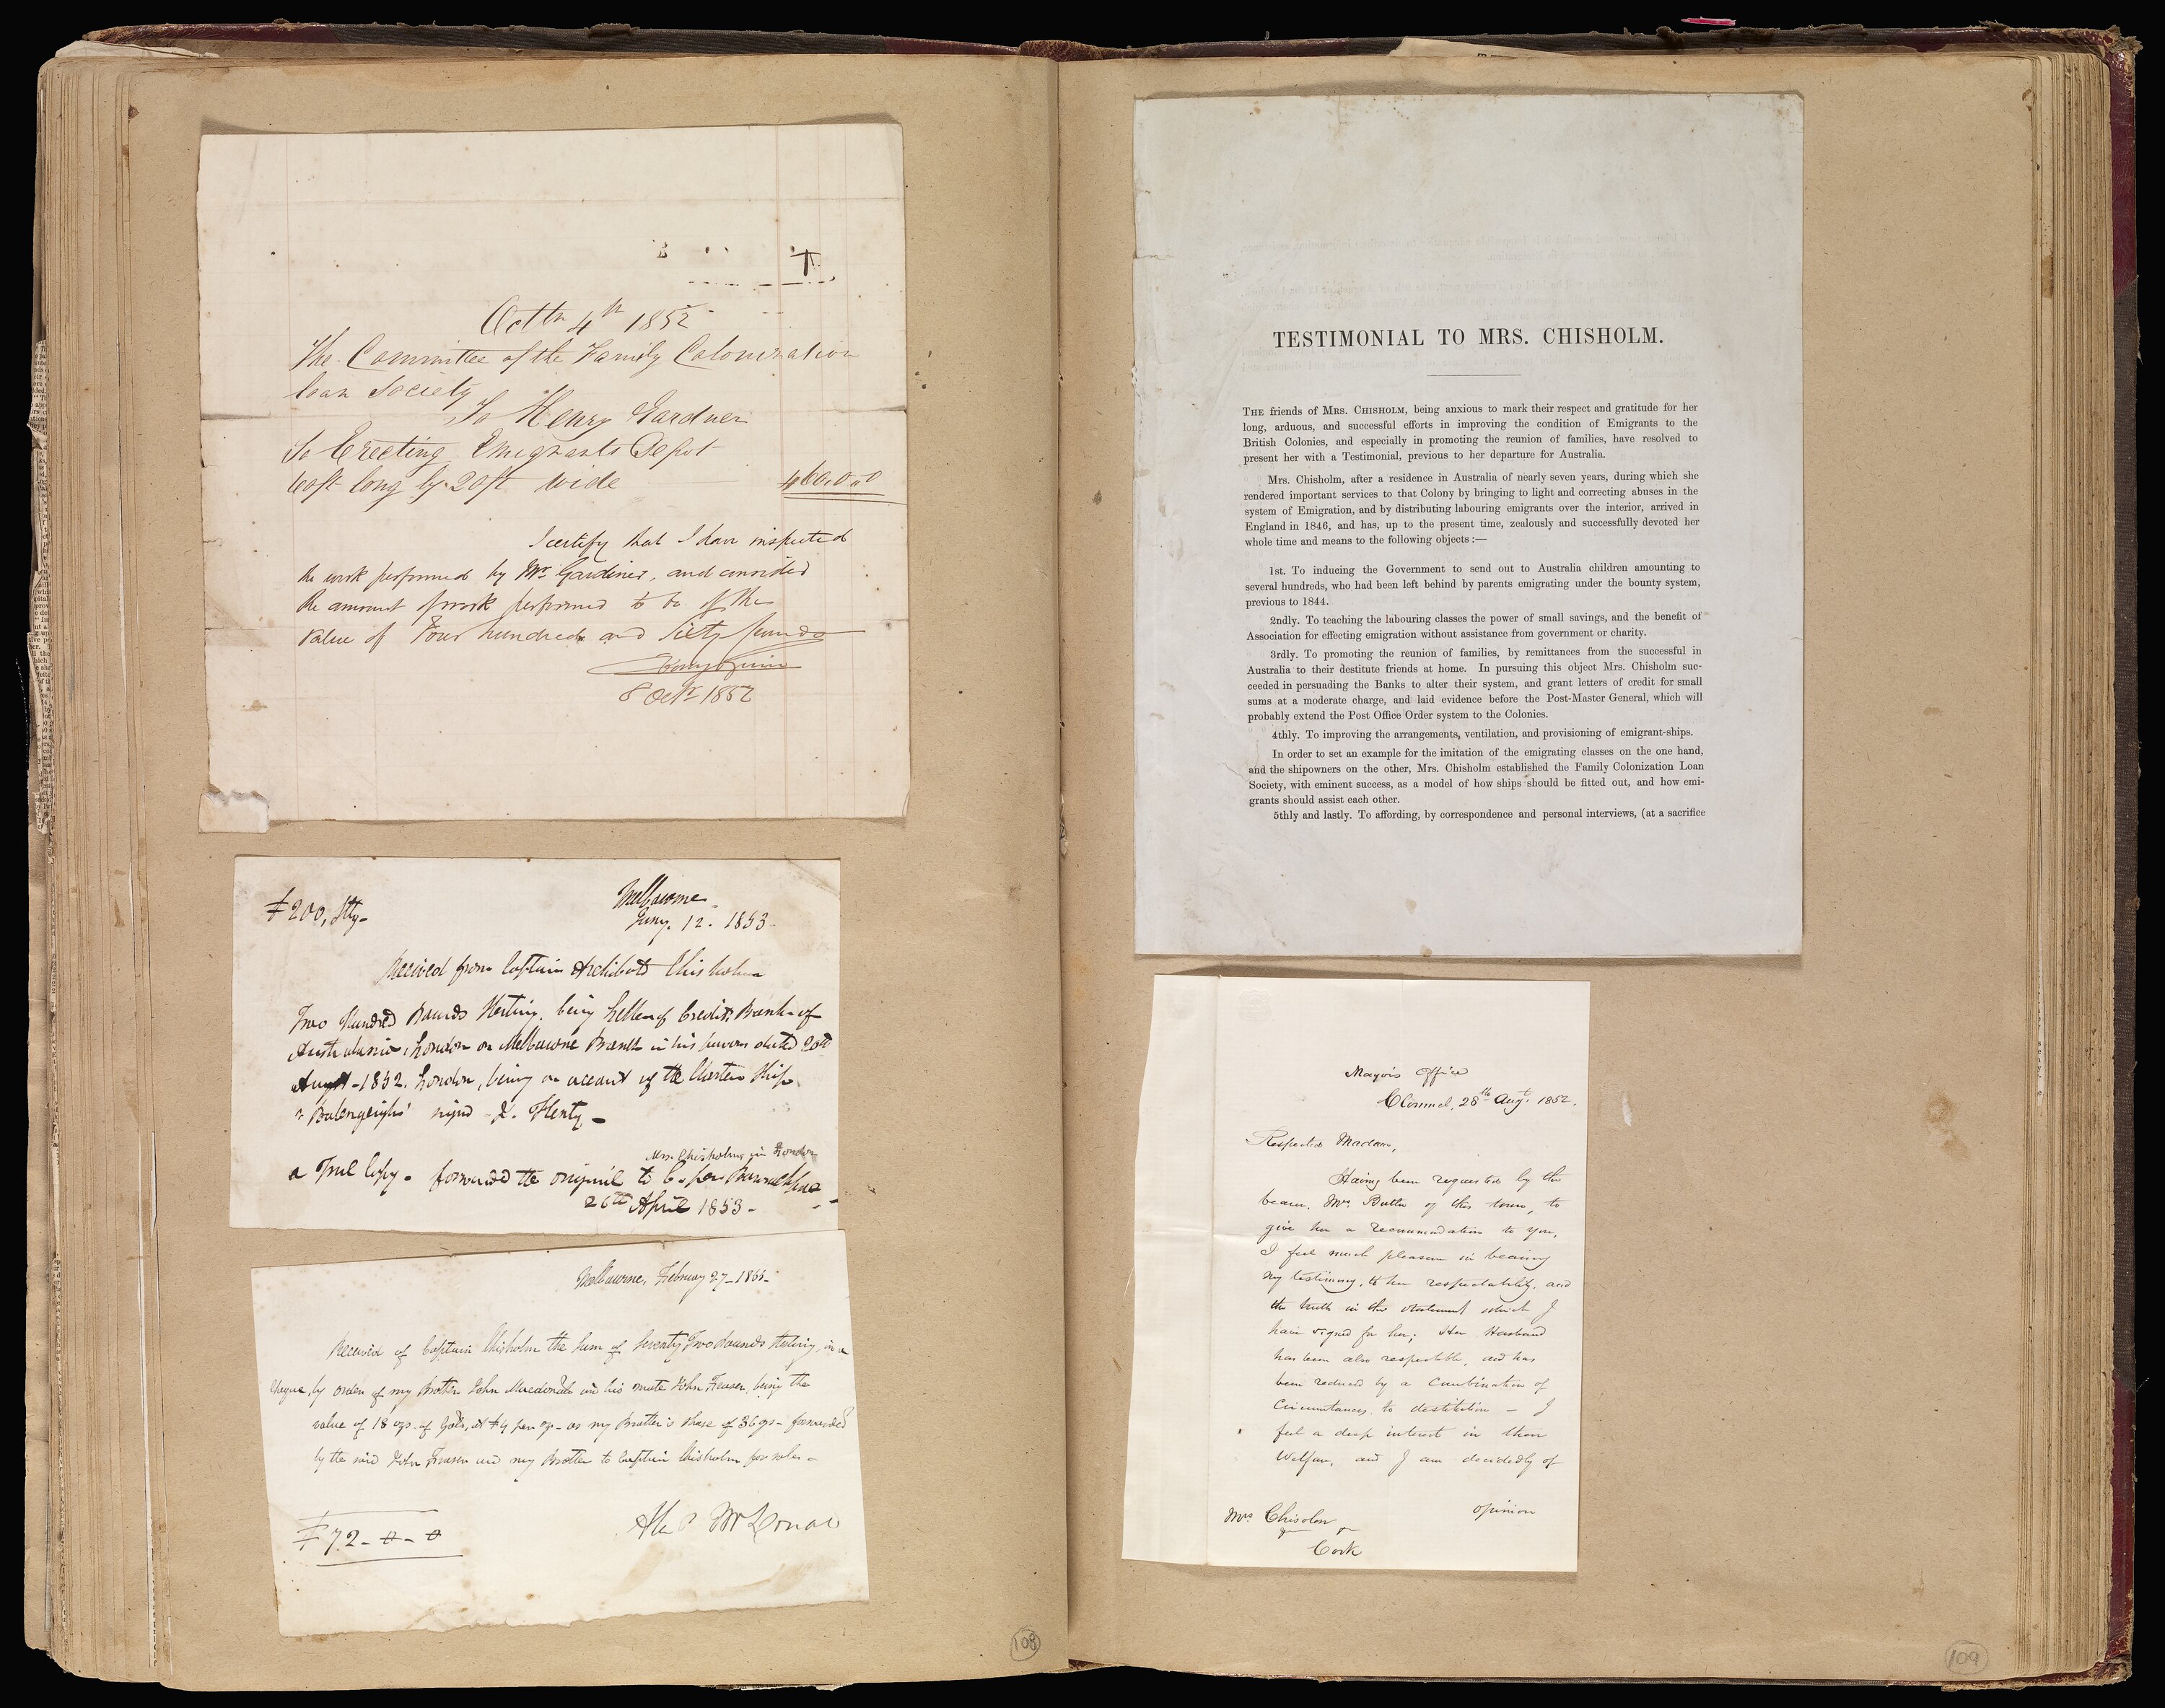 Octbr 4th 1852
The Committee of the Family Colonization
loan Society
To Henry Gardner
To Erecting Emigrants Depot
60ft long by 20ft wide 460.0.0
I certify that I have inspected
the work performed by Mr. Gardiner, and consider
the amount of work performed to be of the
value of Four hundred and Sixty pounds
8 Octr 1852
£200, Stg-
Melbourne
Jany. 12. 1853
Received from Captain Archibald Chisholm
Two Hundred Pounds Sterling, being Letter of Credit, Bank of
Australasia, London on Melbourne Branch in his favour dated 20th
Augst-1852. London, being on account of the Charter Ship
"Ballengeigh" signd - J. Henty -
Mrs. Chisholm in London
a True Copy - forwarded the original to
26th April 1853 -
Melbourne, February 27-1853-
Received of Captain Chisholm the Sum of Seventy Two Pounds Sterling, in a
cheque, by order of my Brother John Macdonald and his mate John Fraser, being the
value of 18 ozs. of Gold, at £4 per oz - as my Brother's share of 36 ozs - forwarded
by the said John Fraser and my Brother to Captain Chisholm for sale -
£72 - 0 - 0
108
TESTIMONIAL TO MRS. CHISHOLM.
THE friends of MRS. CHISHOLM, being anxious to mark their respect and gratitude for her
long, arduous, and successful efforts in improving the condition of Emigrants to the
British Colonies, and especially in promoting the reunion of families, have resolved to
present her with a Testimonial, previous to her departure for Australia.
Mrs. Chisholm, after a residence in Australia of nearly seven years, during which she
rendered important services to that Colony by bringing to light and correcting abuses in the
system of Emigration, and by distributing labouring emigrants over the interior, arrived in
England in 1846, and has, up to the present time, zealously and successfully devoted her
whole time and means to the following objects:—
1st. To inducing the Government to send out to Australia children amounting to
several hundreds, who had been left behind by parents emigrating under the bounty system,
previous to 1844.
2ndly. To teaching the labouring classes the power of small savings, and the benefit of
Association for effecting emigration without assistance from government or charity.
3rdly. To promoting the reunion of families, by remittances from the successful in
Australia to their destitute friends at home. In pursuing this object Mrs. Chisholm suc-
ceeded in persuading the Banks to alter their system, and grant letters of credit for small
sums at a moderate charge, and laid evidence before the Post-Master General, which will
probably extend the Post Office Order system to the Colonies.
4thly. To improving the arrangements, ventilation, and provisioning of emigrant-ships.
In order to set an example for the imitation of the emigrating classes on the one hand,
and the shipowners on the other, Mrs. Chisholm established the Family Colonization Loan
Society, with eminent success, as a model of how ships should be fitted out, and how emi-
grants should assist each other.
5thly and lastly. To affording, by correspondence and personal interviews, (at a sacrifice
Mayor's Office
Clonmel, 28th Augt. 1852.
Respected Madam,
Having been requested by the
bearer, Mrs. Butler of this town, to
give her a recommendation to you,
I feel much pleasure in bearing
my testimony, to her respectability, and
the truth in the statement which I
have signed for her; Her Husband
has been also respectable, and has
been reduced by a Combination of
Circumstances, to destitution - I
feel a deep interest in their
Welfare, and I am decidedly of
opinion
Mrs. Chisolm
Cork
109